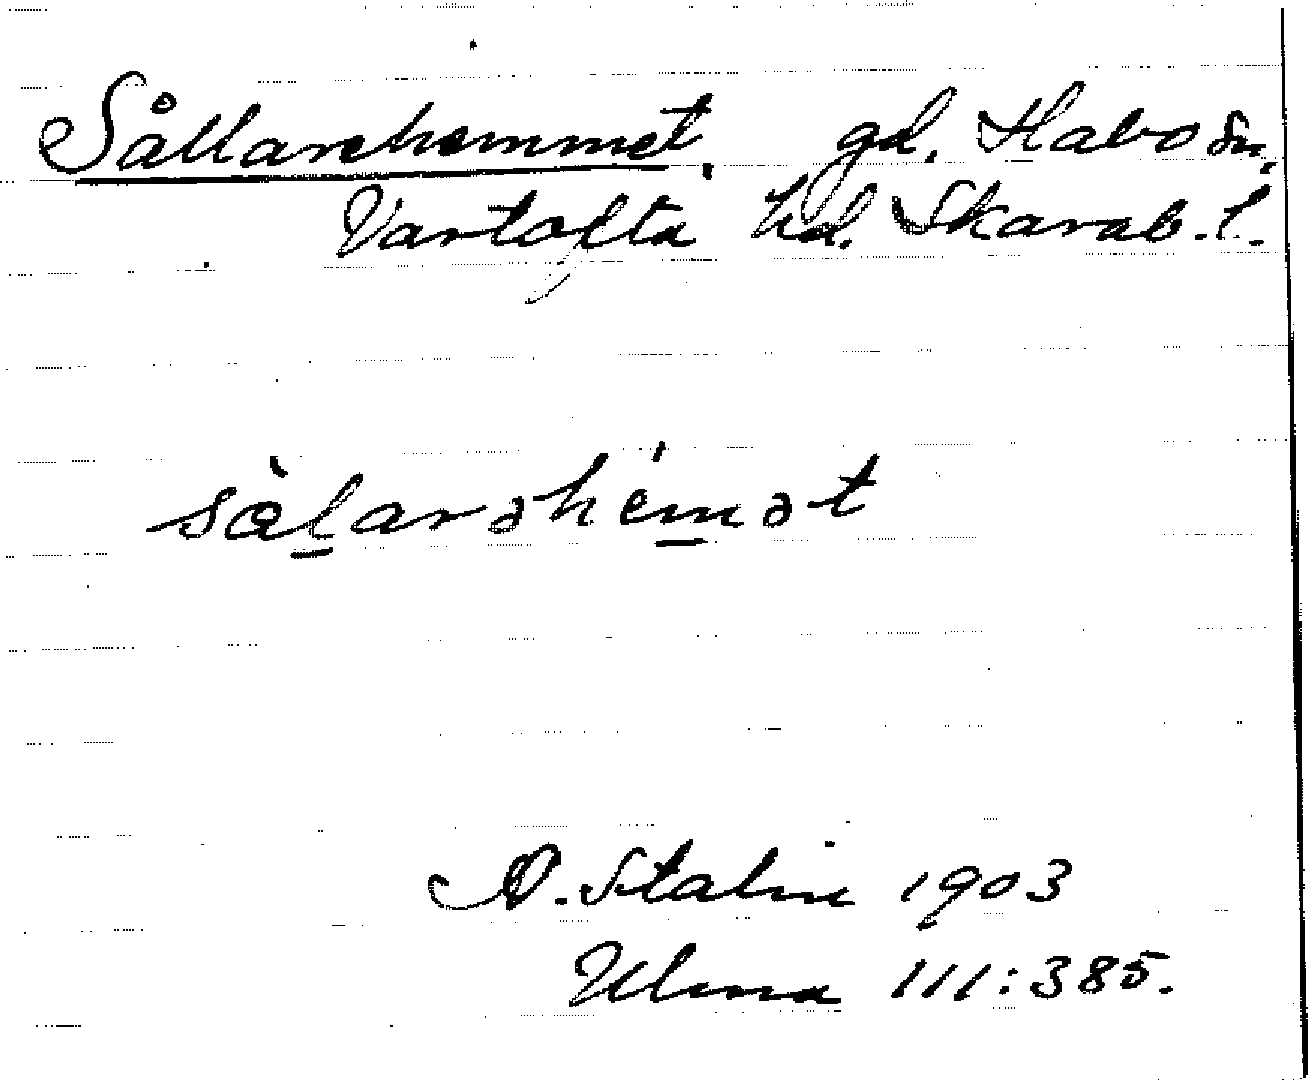 Sållarehemmet, gd. Habo sn.
Vartofta hd. Skarab. l.
sålarəhemət
A. Stalin 1903
Ulma 111:385.